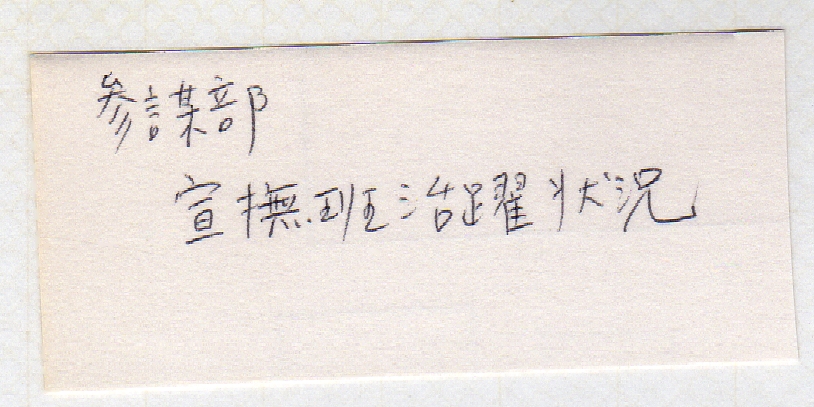 参謀部
宣撫班活躍状況